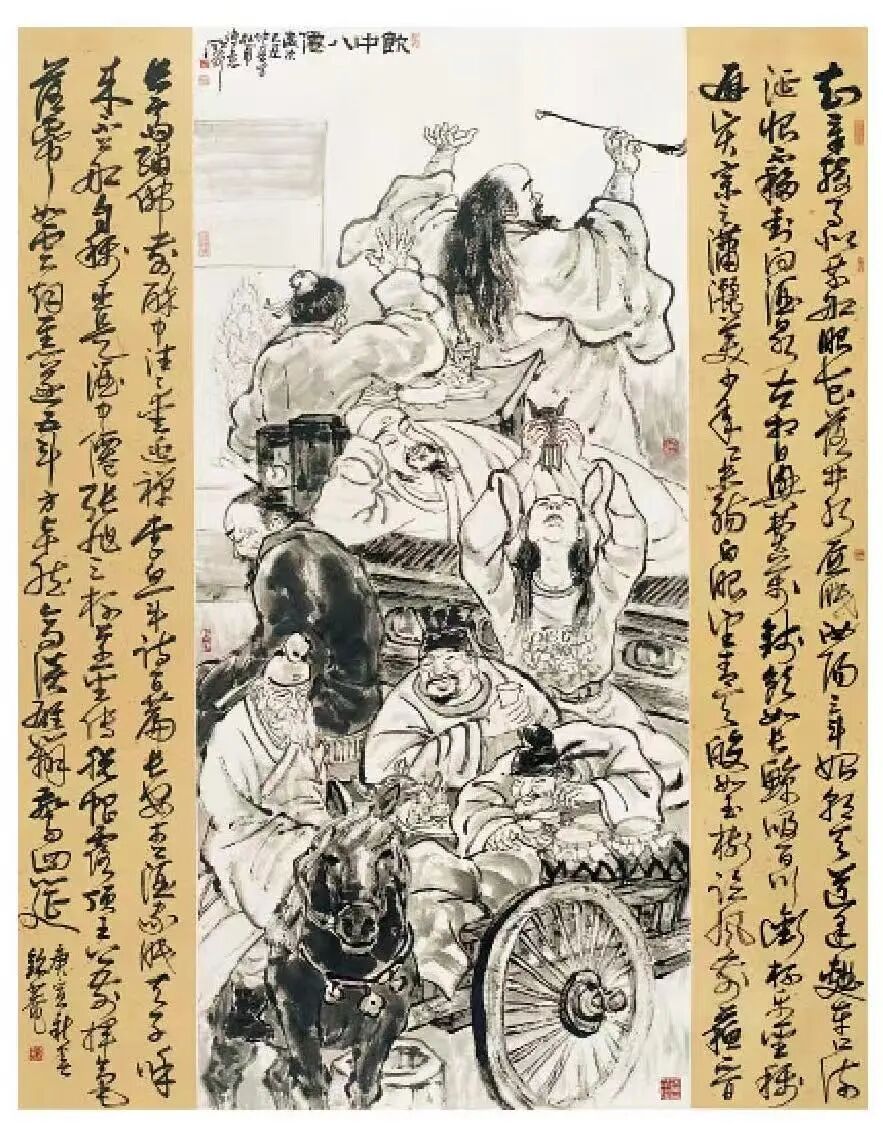 飲中八僊
知章騎馬似乘船眼花落井水底眠汝陽三斗始朝天道逢麴車口流
涎恨不移封向酒泉左相日興費萬錢飲如長鯨吸百川銜杯樂聖稱
避賢宗之瀟灑美少年舉觴白眼望青天皎如玉樹臨風前蘇晉
長齋繡佛前醉中往往愛逃禪李白一斗詩百篇長安市上酒家眠天子呼
來不上船自稱臣是酒中僊張旭三杯草聖傳脫帽露頂王公前揮毫
落紙如雲烟焦遂五斗方卓然高談雄辯驚四筵
庚寅秋